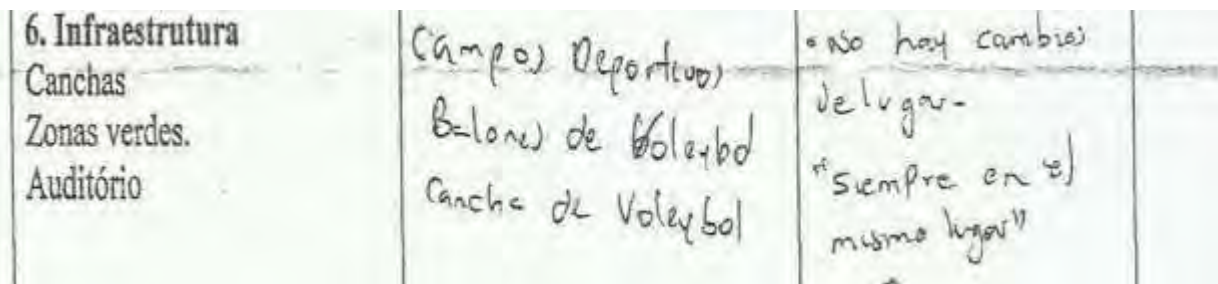 6. Infraestrutura
Canchas
Zonas verdes.
Auditório
Campos Deportivos
Balones de Voleybol
Cancha de Voleybol
• No hay cambios
de lugar-
"Siempre en el
mismo lugar"